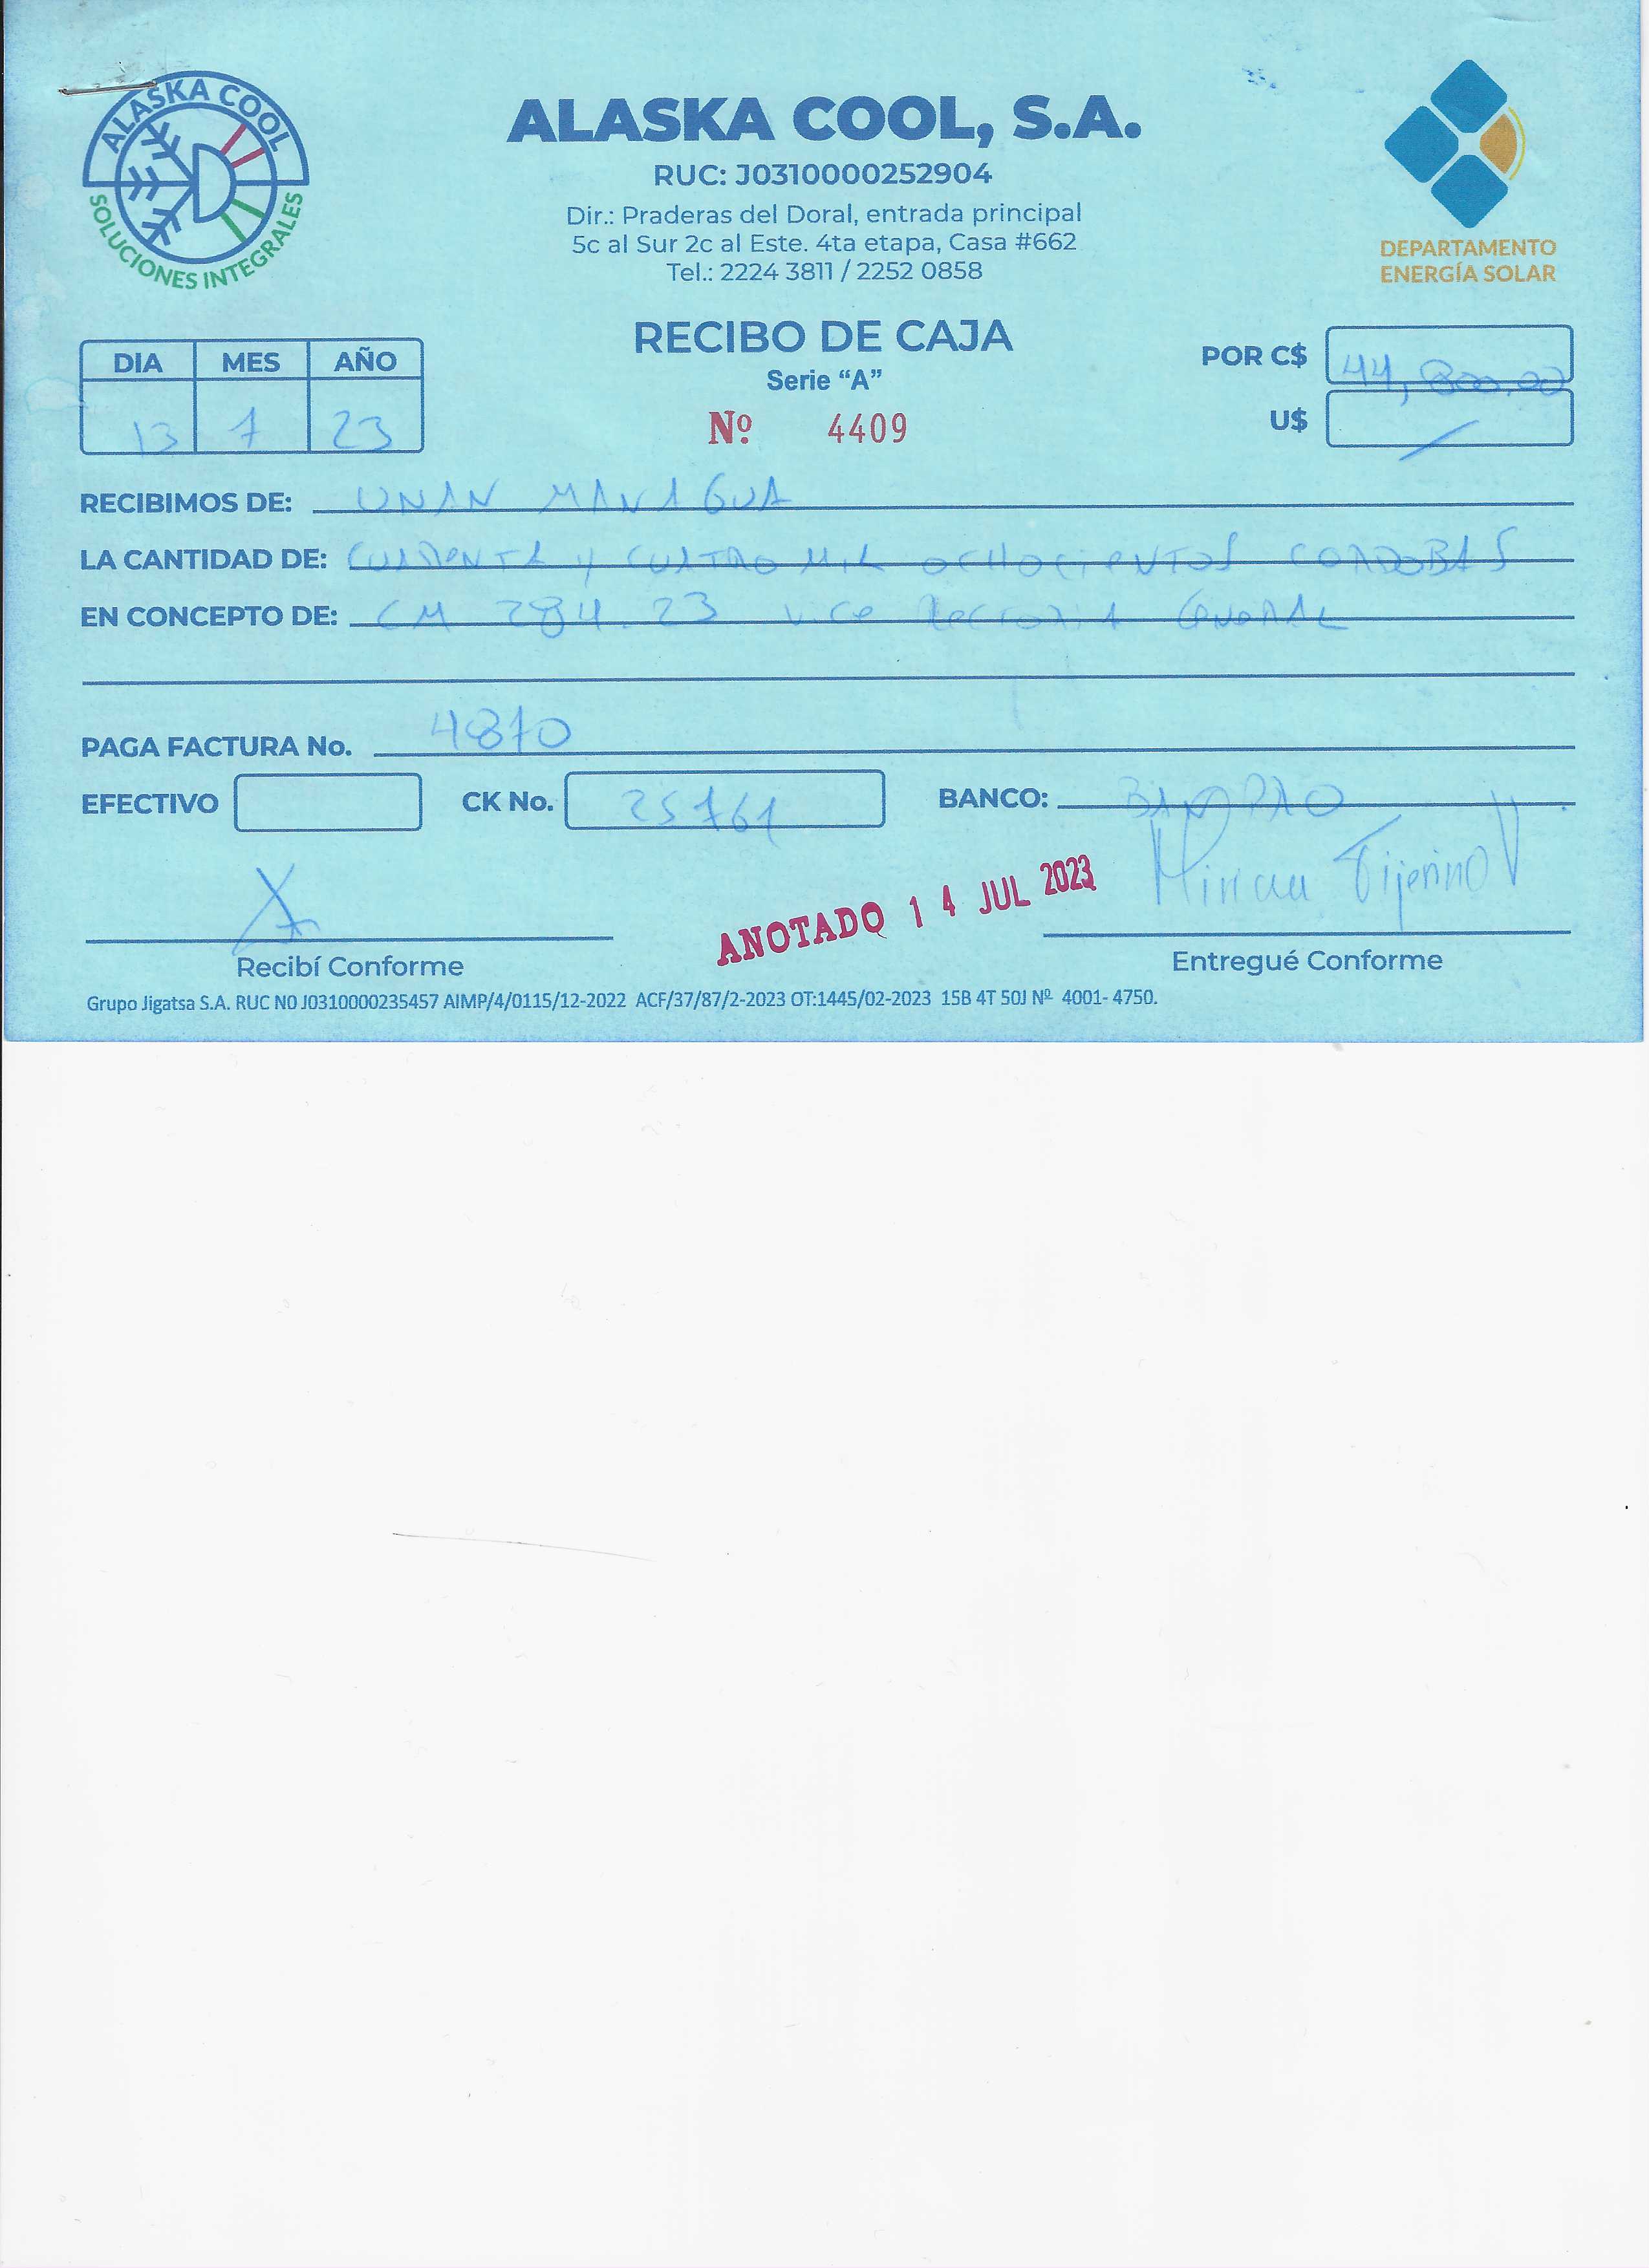 ALASKA COOL
SOLUCIONES INTEGRALES
ALASKA COOL, S.A.
RUC: J0310000252904
Dir.: Praderas del Doral, entrada principal
5c al Sur 2c al Este. 4ta etapa, Casa #662
Tel.: 2224 3811 / 2252 0858
DEPARTAMENTO
ENERGÍA SOLAR
RECIBO DE CAJA
Serie “A”
Nº 4409
DIA MES AÑO
13 7 23
POR C$ 44,800.00
U$
RECIBIMOS DE: UNAN MANAGUA
LA CANTIDAD DE: CUARENTA Y CUATRO MIL OCHOCIENTOS CORDOBAS
EN CONCEPTO DE: CM 284.23 Vice Rectoria GENERAL
PAGA FACTURA No. 4870
EFECTIVO CK No. 25761 BANCO: BANPRO
ANOTADO 14 JUL 2023
Tijerino V
Recibí Conforme
Entregué Conforme
Grupo Jigatsa S.A. RUC N0 J0310000235457 AIMP/4/0115/12-2022 ACF/37/87/2-2023 OT:1445/02-2023 15B 4T 50J Nº 4001- 4750.